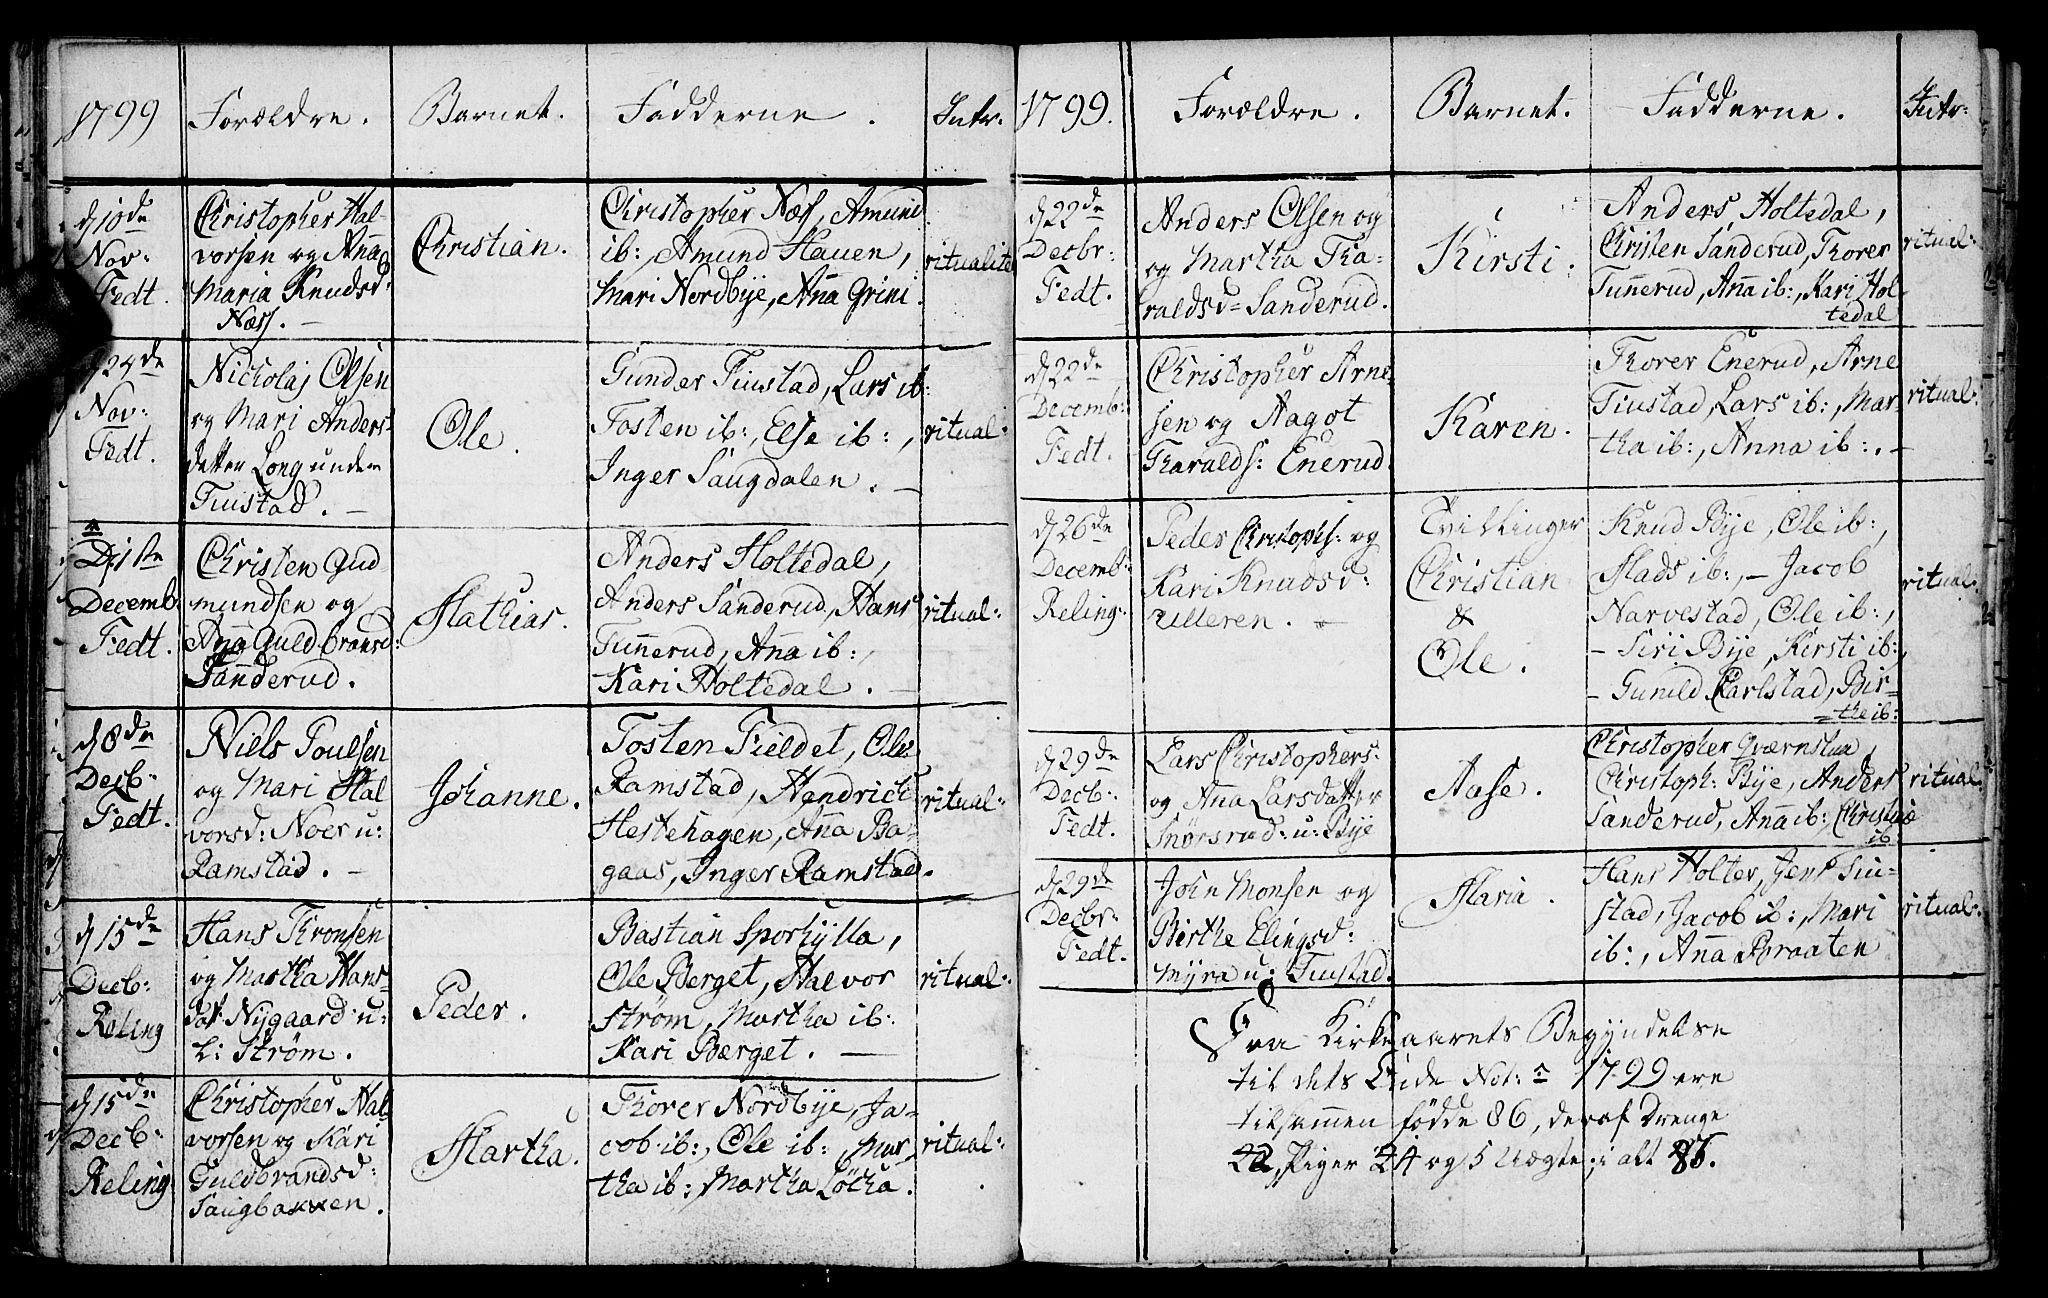 1799
Forældre.
Barnet.
Fadderne.
Intr:
d 10de
Nov:
Fedt.
Christopher Hal-
vorsen og Anna
Maria Knudsd:
Næss. –
Christian.
Christopher Næss, Amund
ib:, Amund Hauen,
Mari Nordbye, Anna Grini.
ritualiter
d 24de
Nov:
Fedt.
Nickolaj Olsen
og Mari Anders-
datter Long under
Tiustad. –
Ole.
Gunder Tiustad, Lars ib:
Tosten ib:, Else ib:,
Inger Saugdalen. –
ritual:
D. 1ste
Decemb:
Fedt.
Christen Gud
mundsen og
Anna Guldbransd:
Sanderud.
Mathias.
Anders Holtedal,
Anders Sanderud, Hans
Tunnerud, Anna ib:,
Kari Holtedal. –
ritual:
d 8de
Decb:
Fedt.
Niels Poulsen
og Mari Hal
vorsd: Noer u:
Ramstad. –
Johanne.
Tosten Fieldet, Ole
Ramstad, Hendrich
Hestehagen, Anna Ba-
gaas, Inger Ramstad.
ritual:
d 15de
Decb:
Reling
Hans Tronsen
og Martha Hans-
dat: Nygaard u:
L: Strøm.
Peder.
Bastian Sporkylla,
Ole Berget, Halvor
Strøm, Martha ib:
Kari Berget. –
ritual:
d 15de
Decb:
Reling
Christopher Hal-
vorsen og Kari
Guldbrandsd:
Saugbakken.
Martha.
Thorer Nordbye, Ja-
cob ib:, Ole ib: Mar-
tha ib: Martha Løcka.
ritual:
1799.
Forældre.
Barnet.
Fadderne.
Intr:
d 22de
Decbr:
Fedt.
Anders Olsen og
og Martha Tha-
raldsd= Sanderud.
Kirsti.
Anders Holtedal,
Christen Sanderud, Thorer
Tunnerud, Anna ib:, Kari Hol-
tedal
ritual:
d 22de
Decemb:
Fedt.
Christopher Arne-
sen og Aagot
Tharalds: Enerud.
Karen.
Thorer Enerud, Arne
Tiustad, Lars ib:, Mar-
tha ib:, Anna ib:. –
ritual:
d 26de
Decemb:
Reling:
Peder Christophs: og
Kari Knudsd:
Ulleren. –
Tvillinger
Christian
&
Ole.
Knud Bye, Ole ib:,
Mads ib:, – Jacob
Narvestad, Ole ib:,
– Siri Bye, Kirsti ib:,
– Gunild Karlstad, Bir-
the ib:
ritual:
d 29de
Decb:
Fedt.
Lars Christophers:
og Anna Larsdatter
Snørsrud: u: Bye
Aase.
Christopher Qværnstua,
Christoph: Bye, Anders
Sanderud, Anna ib:, Christine
ib:
ritual:
d 29de
Decbr:
Fedt.
John Monsen og
Birthe Elingsd:
Myra u: Tiustad.
Maria.
Hans Holter, Jens Tiu-
stad, Jacob ib:, Mari
ib:, Anna Braaten
ritual:
Fra Kirkeaarets Begyndelse
til dets Ende Not: 1799 ere
tilsammen fødde 86, deraf Drenge
42, Piger 44 og 5 Uægte; i alt 86.